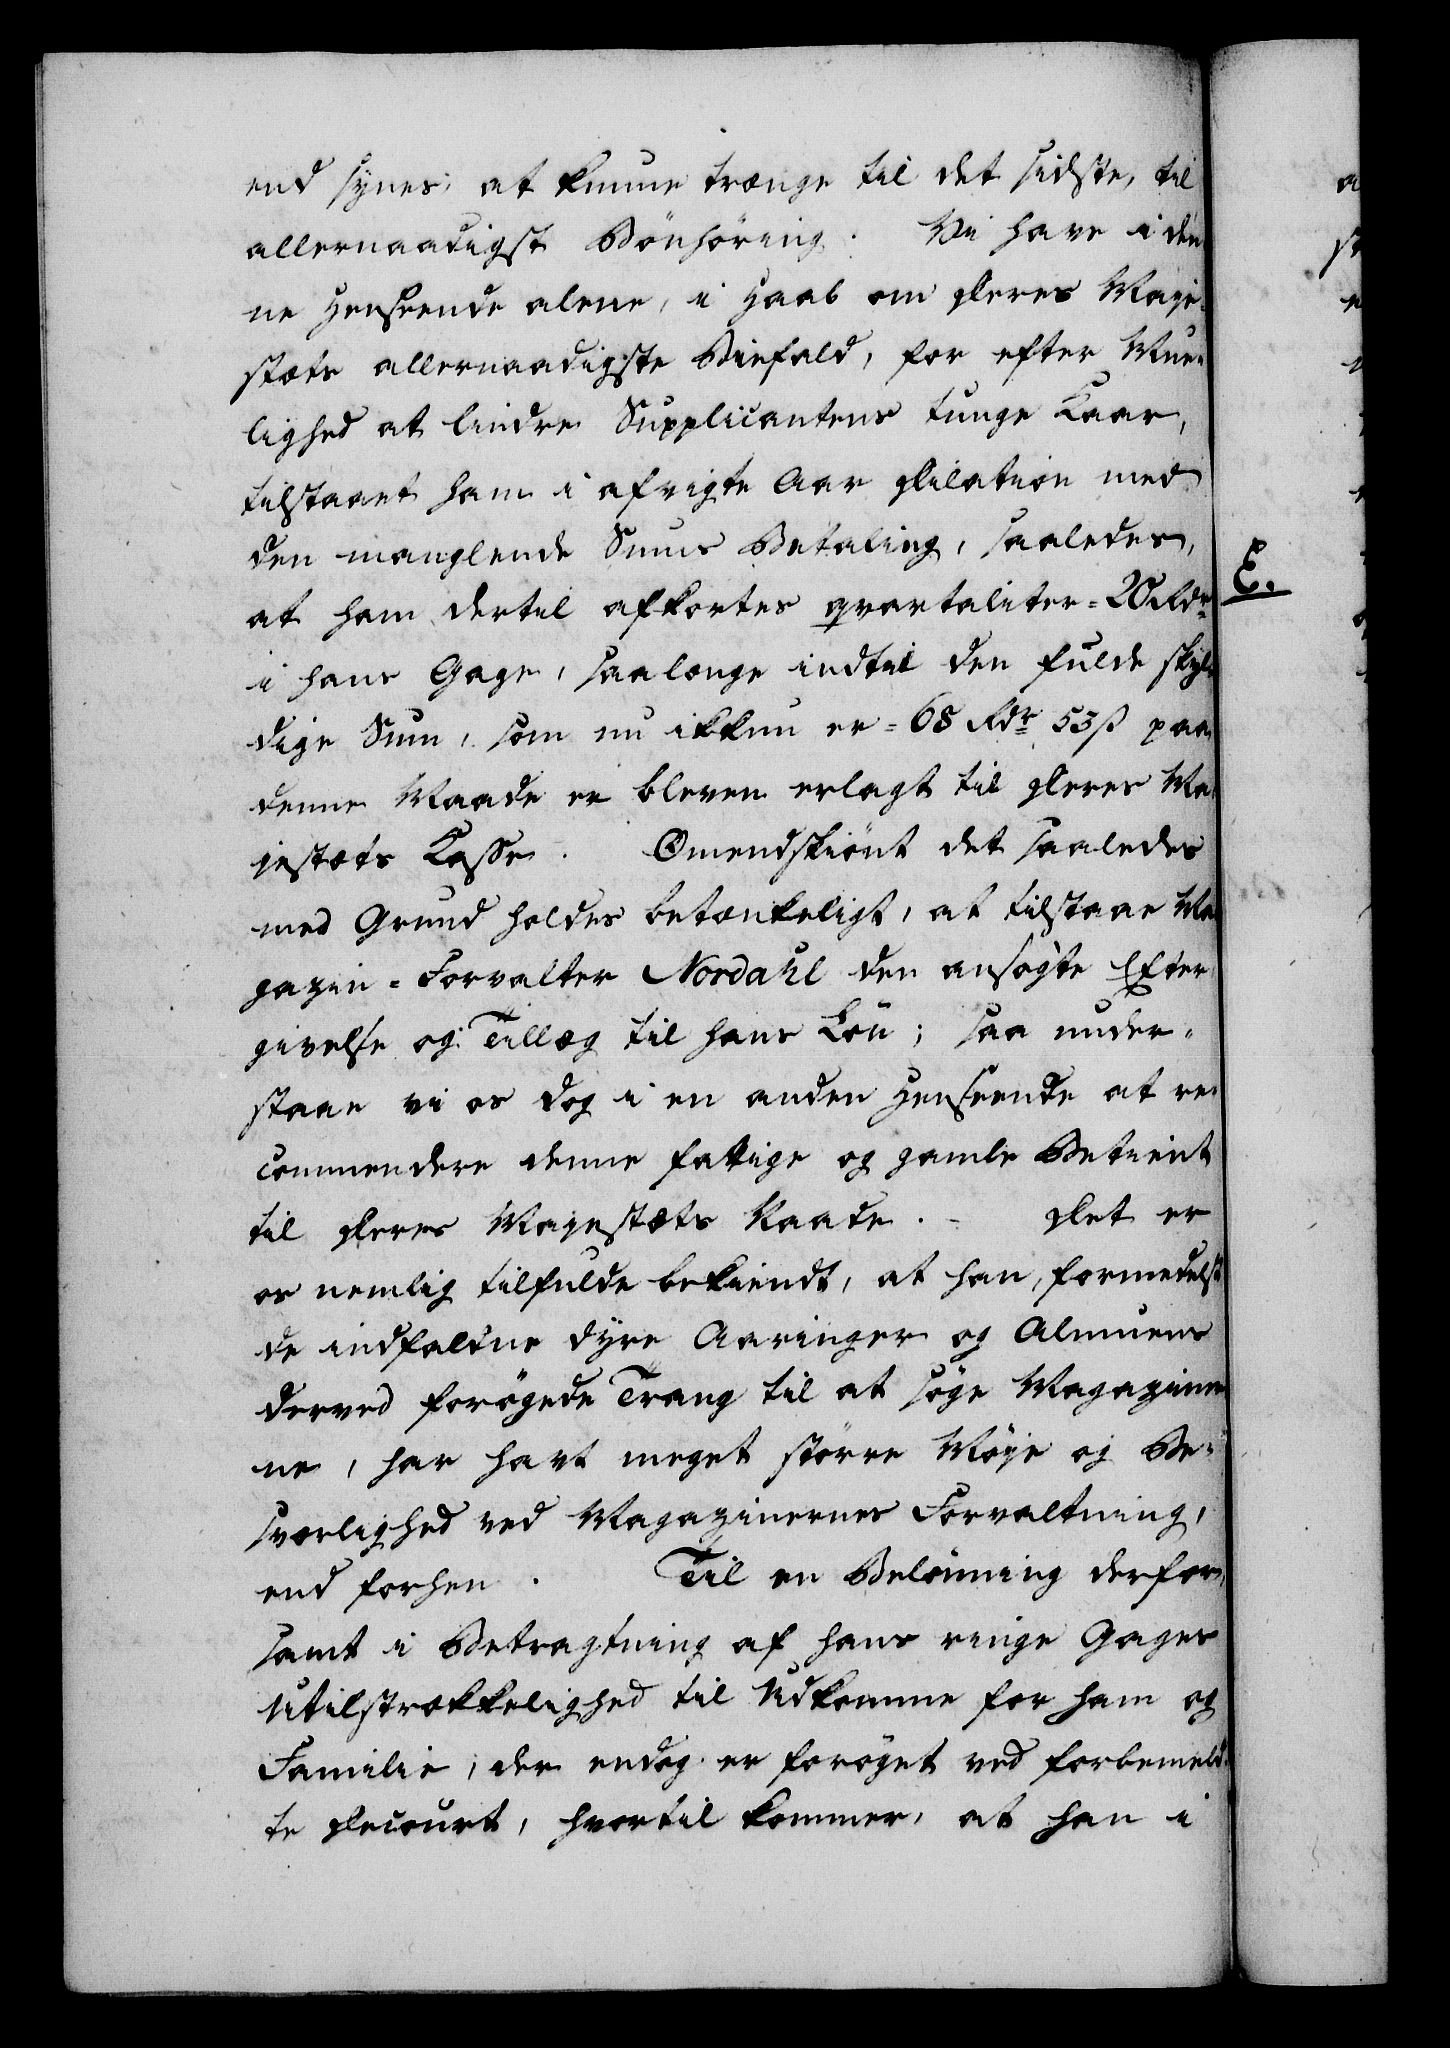 end synes, at kunne trænge til det sidste, til
allernaadigst Bönhöring. Vi have i den
ne Henseende alene, i Haab om Deres Maje-
stæts allernaadigste Biefald, for efter Mue-
lighed at lindre Supplicantens tunge Kaar,
tilstaaet ham i afvigte Aar Dilation med
den manglende Sums Betaling, saaledes,
at ham dertil afkortes qvartaliter = 20 Rdr
i hans Gage, saalænge indtil den fulde skyl-
dige Sum, som nu ikkun er = 68 Rdr 53 ß paa
denne Maade er bleven erlagt til Deres Ma
jestæts Kasse. Omendskiönt det saaledes
med Grund holdes betænkeligt, at tilstaae Ma
gazin = Forvalter Nordahl den ansögte Efter
givelse og Tillæg til hans Lön; saa under-
staae vi os dog i en anden Henseende at re-
commendere denne fattige og gamle Betient
til Deres Majestæts Naade. - Det er
os nemlig tilfulde bekiendt, at han, formedelst
de indfaldne dyre Aaringer og Almuens
derved forögede Trang til at söge Magazine
ne, har havt meget större Möje og Be-
sværlighed ved Magazinernes Forvaltning,
end forhen. Til en Belönning derfor,
samt i Betragtning af hans ringe Gages
Utilstrækkelighed til Udkomme for ham og
Familie, der endog er foröget ved forbemeld
te Decourt, hvortil kommer, at han i
E.